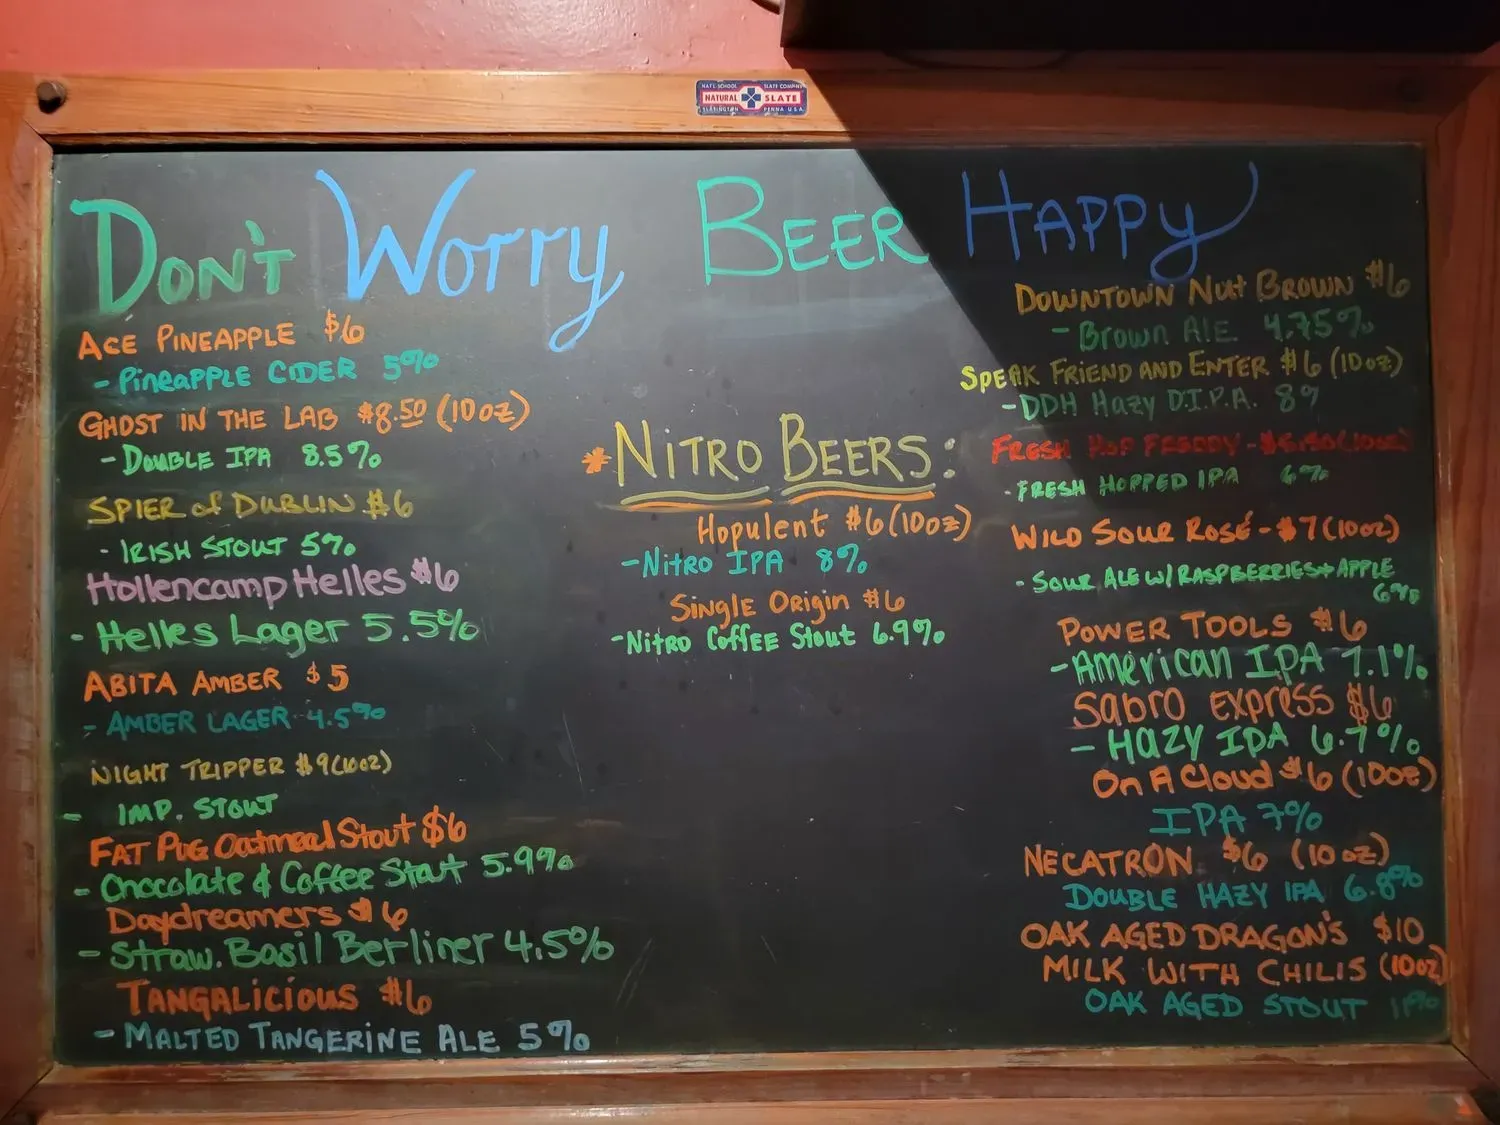 NAT'L SCHOOL SLATE COMPANY
NATURAL SLATE
SLATINGTON PENNA U.S.A.
DON'T WORRY BEER HAPPY
ACE PINEAPPLE $6
- PINEAPPLE CIDER 5%
GHOST IN THE LAB $8.50 (10oz)
- DOUBLE IPA 8.5%
SPIER of DUBLIN $6
- IRISH STOUT 5%
Hollencamp Helles $6
- Helles Lager 5.5%
ABITA AMBER $5
- AMBER LAGER 4.5%
NIGHT TRIPPER $9 (10oz)
- IMP. STOUT
FAT PUG Oatmeal Stout $6
- Chocolate & Coffee Stout 5.9%
Daydreamers $6
- Straw. Basil Berliner 4.5%
TANGALICIOUS $6
- MALTED TANGERINE ALE 5%
*NITRO BEERS:
Hopulent $6 (10oz)
- NITRO IPA 8%
Single Origin $6
- NITRO COFFEE Stout 6.9%
DOWNTOWN NUt BROWN $6
- Brown Ale 4.75%
SPEAK FRIEND AND ENTER $6 (10oz)
- DDH Hazy D.I.P.A. 8%
FRESH HOP FREDDY - (10oz)
- FRESH HOPPED IPA 6%
WILD SOUR ROSÉ - $7 (10oz)
- SOUR ALE W/ RASPBERRIES + APPLE
6%
POWER TOOLS $6
- American IPA 7.1%
Sabro Express $6
- Hazy IPA 6.7%
On A Cloud $6 (10oz)
IPA 7%
NECATRON $6 (10oz)
DOUBLE HAZY IPA 6.8%
OAK AGED DRAGON'S $10
MILK WITH CHILIS (10oz)
OAK AGED STOUT 11%